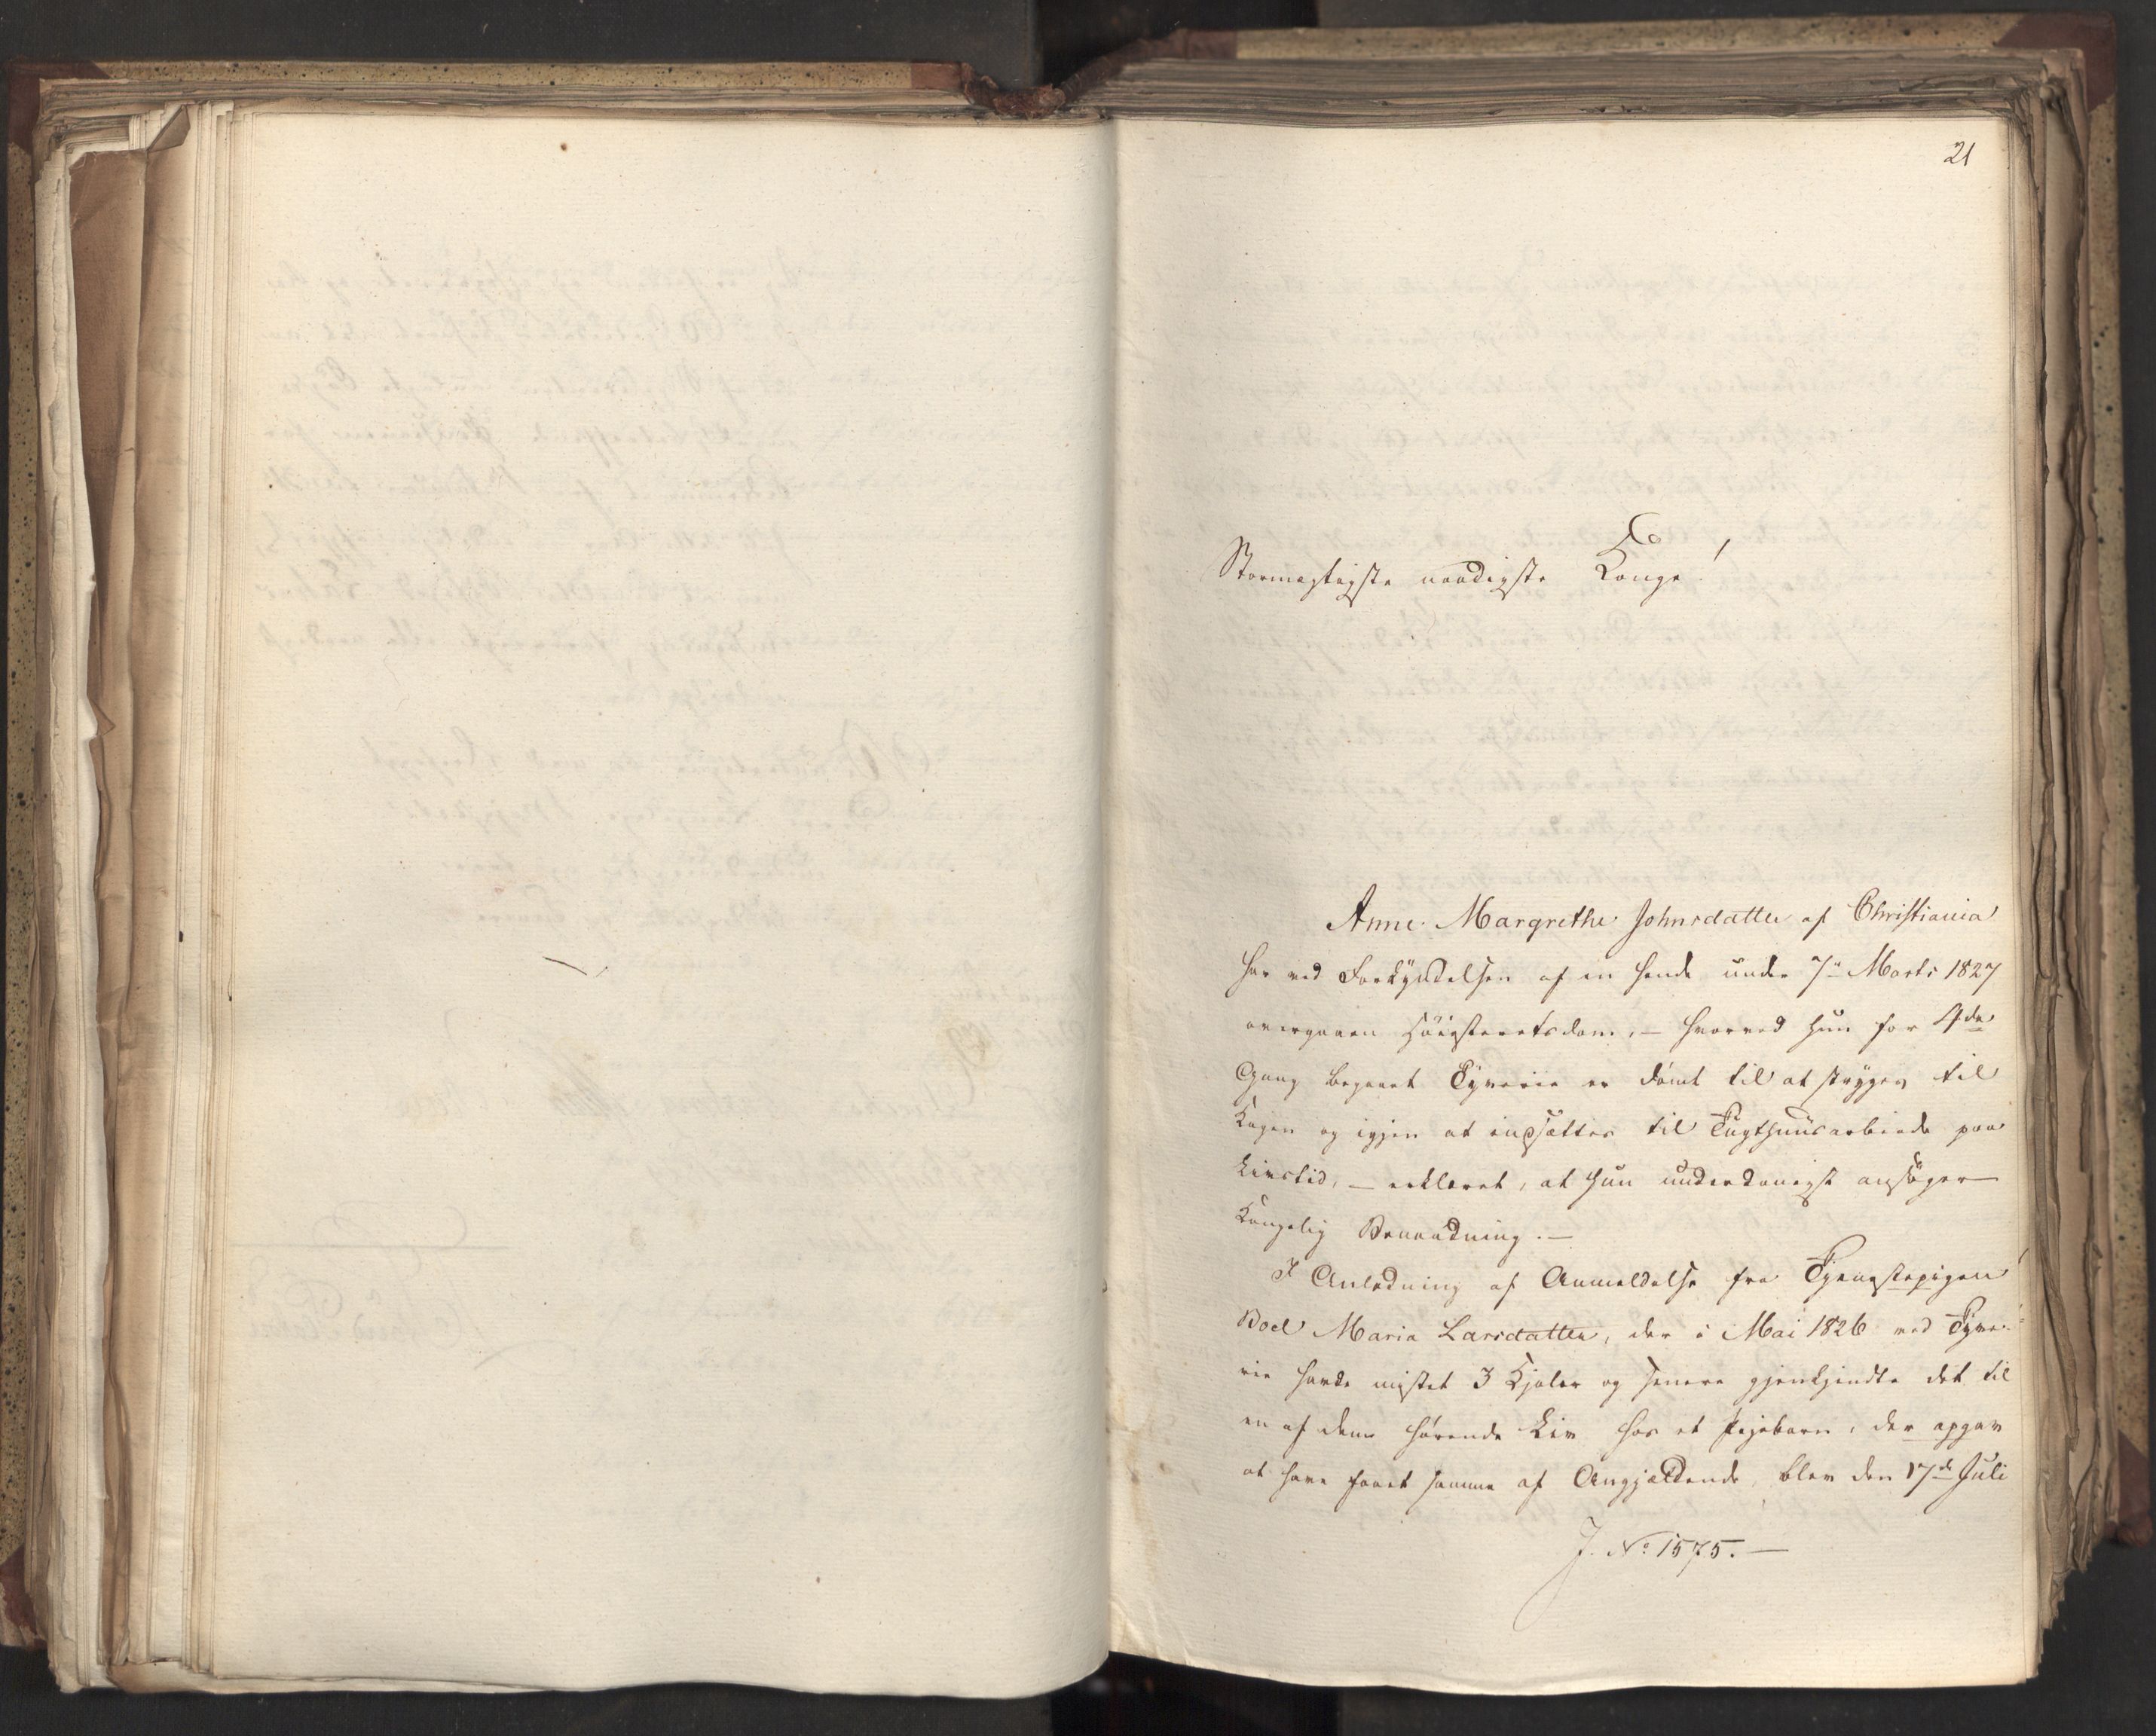 21
Stormægtigste naadigste Konge!
Anne Margrethe Johnsdatter af Christiania
har ved Forkyndelsen af en hende under 7de Marts 1827
overgaaen Høiesteretsdom, – hvorved hun for 4de
Gang begaaet Tyverie er dømt til at stryges til
Kagen og igjen at indsættes til Tugthuusarbeide paa
Livstid, – erklæret, at hun underdanigst ansøger
Kongelig Benaadning. –
I Anledning af Anmeldelse fra Tjenestepigen
Boel Maria Larsdatter, der i Mai 1826 ved Tyve-
rie havde mistet 3 Kjoler og senere gjenkjendte det til
en af dem hørende Liv hos et Pigebarn, der opgav
at have faaet samme af Angjældende, blev den 17de Juli
J. No 1575. –